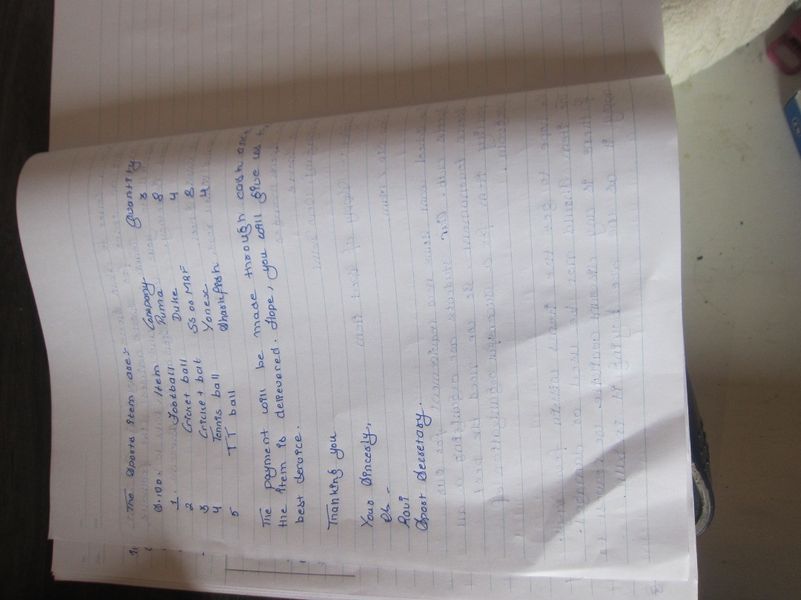 The Sports item are:
S.no. Item Company Quantity
1 Football Puma 3
2 Cricket ball Duke 8
3 Cricket bat SS or MRF 4
4 Tennis ball Yonex 8
5 TT ball 4
The payment will be made through cash once
the item is delievered. Hope, you will give us
best service.
Thanking you
Your Sincesly,
Ravi
Sport Secretary.